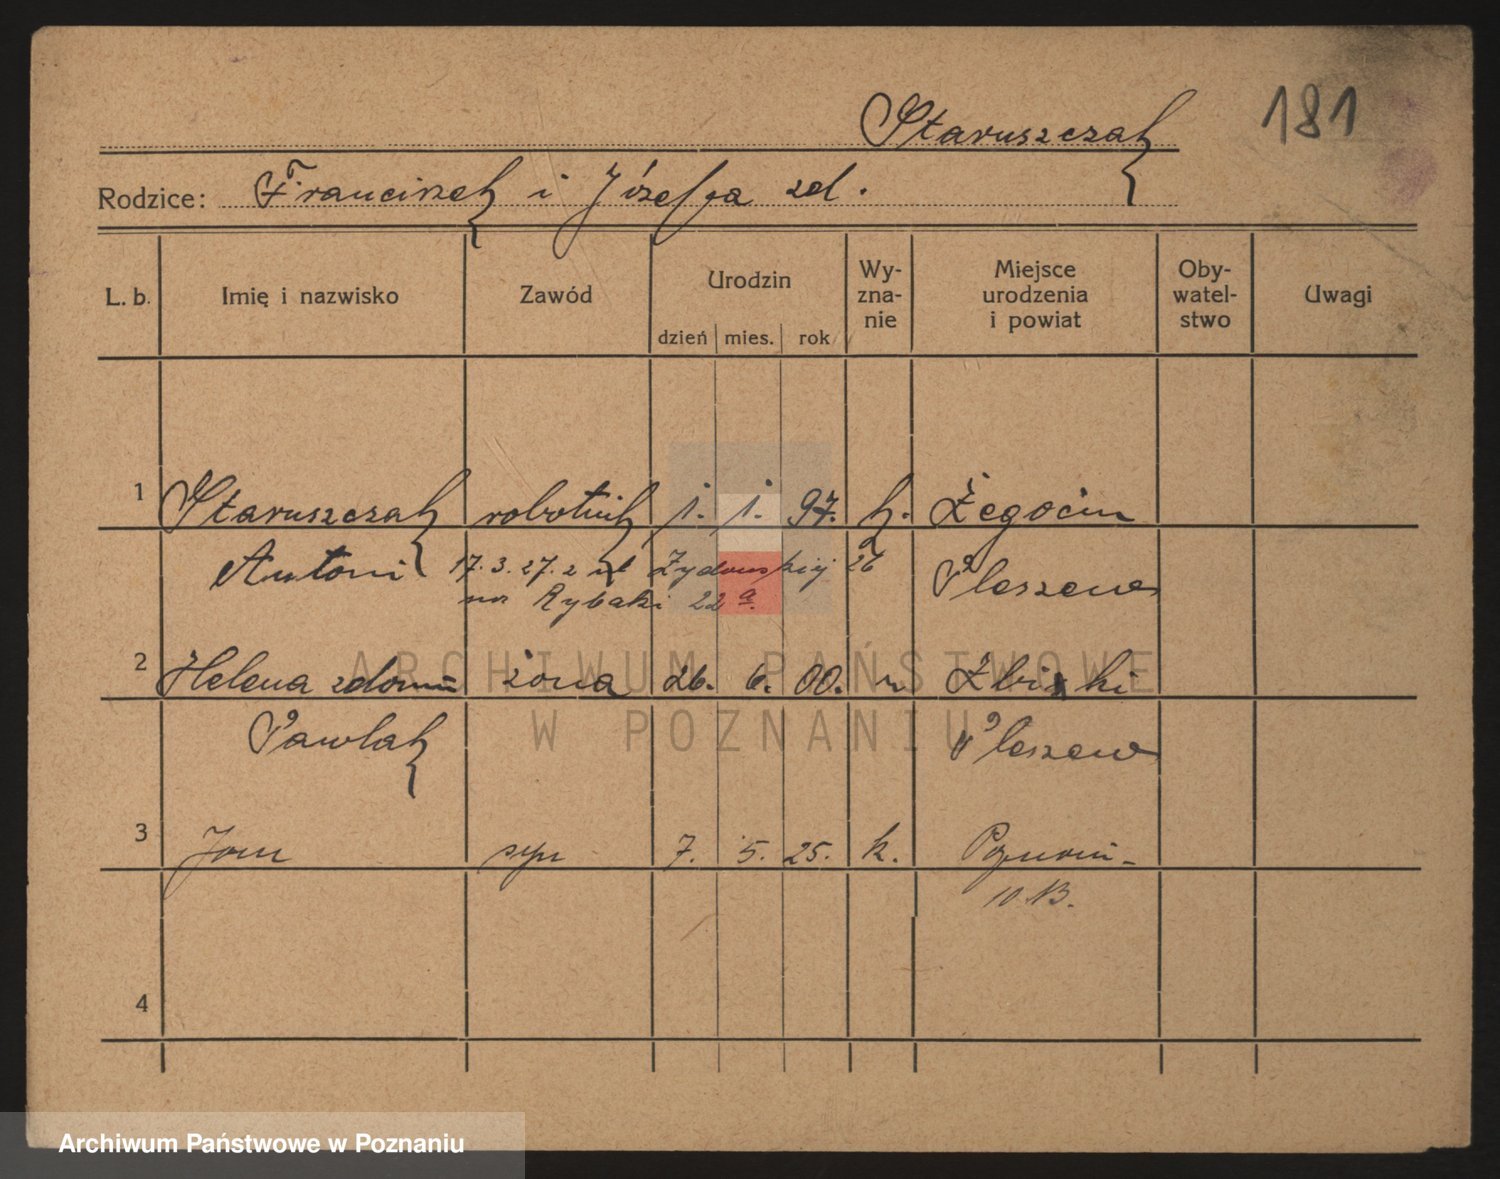 Staruszczak 181
Rodzice: Franciszek i Józefa zd.
L. b. Imię i nazwisko Zawód Urodzin dzień mies. rok Wy-zna-nie Miejsce urodzenia i powiat Oby-watel-stwo Uwagi
1 Staruszczak robotnik 1. 1. 97. k. Żegocin
Antoni 17.3.27. z ul Żydowskiej 26 Pleszew
na Rybaki 22 a.
2 Helena z domu żona 26. 6. 00. " Żbiki
Pawlak Pleszew
3 Jan syn 7. 5. 25. k. Poznań
10 B.
4
ARCHIWUM PAŃSTWOWE
W POZNANIU
Archiwum Państwowe w Poznaniu